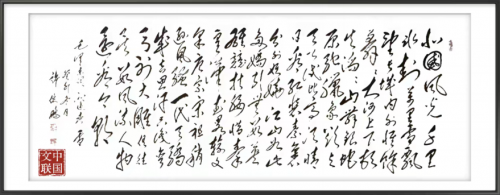 北國風光千里
冰封万里雪飘
望长城内外惟馀
莽莽大河上下顿
失滔滔山舞银蛇
原驰蜡象欲与
天公试比高须晴
日看红装素裹
分外妖娆江山如此
多娇引无数英
雄竞折腰惜秦
皇汉武略输文
采唐宗宋祖稍
逊风骚一代天骄
成吉思汗只识弯
弓射大雕俱往矣
数风流人物
还看今朝
毛泽东词沁园春雪
癸卯冬月
中国
文联